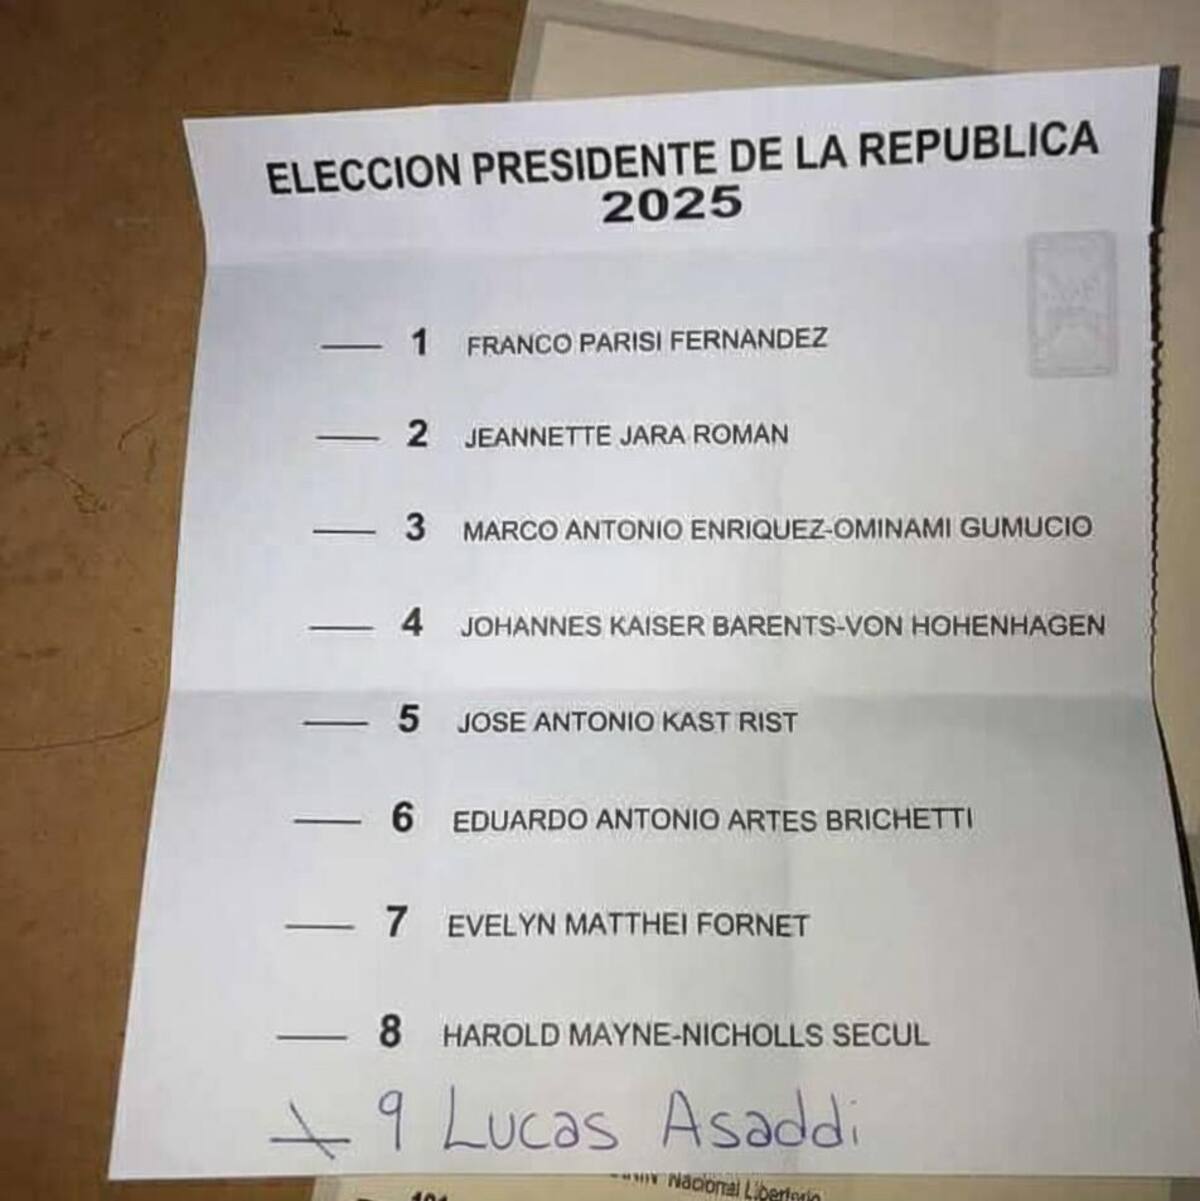 ELECCION PRESIDENTE DE LA REPUBLICA
2025
1 FRANCO PARISI FERNANDEZ
2 JEANNETTE JARA ROMAN
3 MARCO ANTONIO ENRIQUEZ-OMINAMI GUMUCIO
4 JOHANNES KAISER BARENTS-VON HOHENHAGEN
5 JOSE ANTONIO KAST RIST
6 EDUARDO ANTONIO ARTES BRICHETTI
7 EVELYN MATTHEI FORNET
8 HAROLD MAYNE-NICHOLLS SECUL
9 Lucas Asaddi
Nacional Libertario